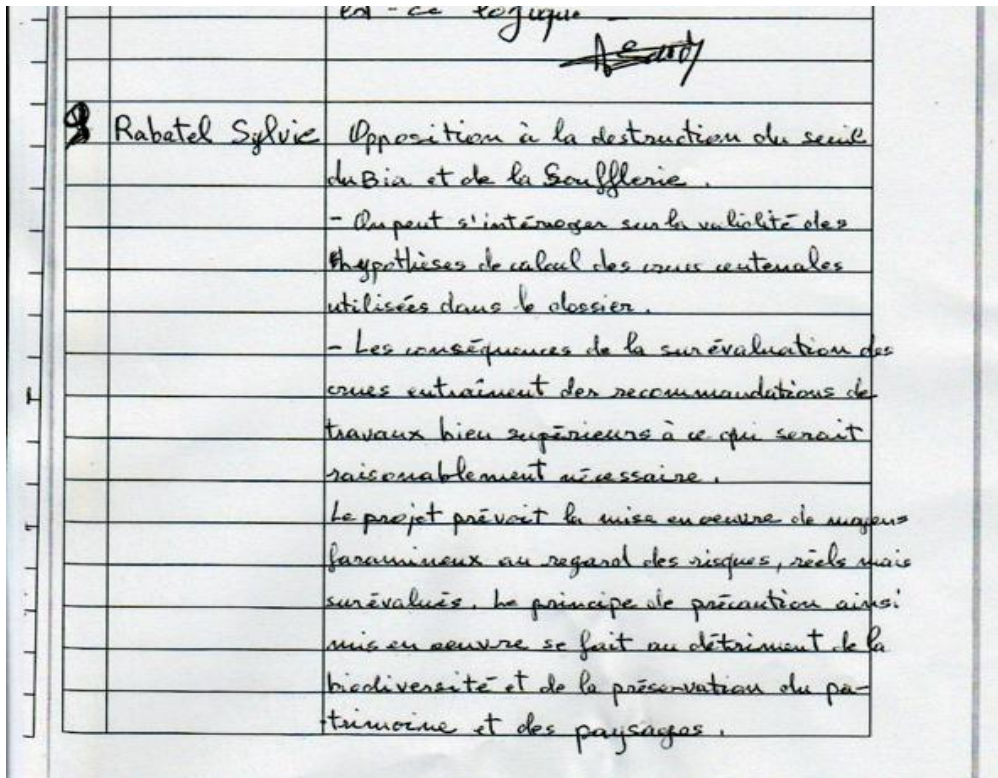 est-ce logique
9 Rabatel Sylvie Opposition à la destruction du seuil
du Bia et de la Soufflerie.
- On peut s'intéroger sur la validité des
hypothèses de calcul des crues centenales
utilisées dans le dossier.
- Les conséquences de la surévaluation des
crues entraînent des recommandations de
travaux bien supérieurs à ce qui serait
raisonablement nécessaire.
Le projet prévoit la mise en oeuvre de moyens
faramineux au regard des risques, réels mais
surévalués. Le principe de précaution ainsi
mis en oeuvre se fait au détriment de la
biodiversité et de la préservation du pa-
trimoine et des paysages.